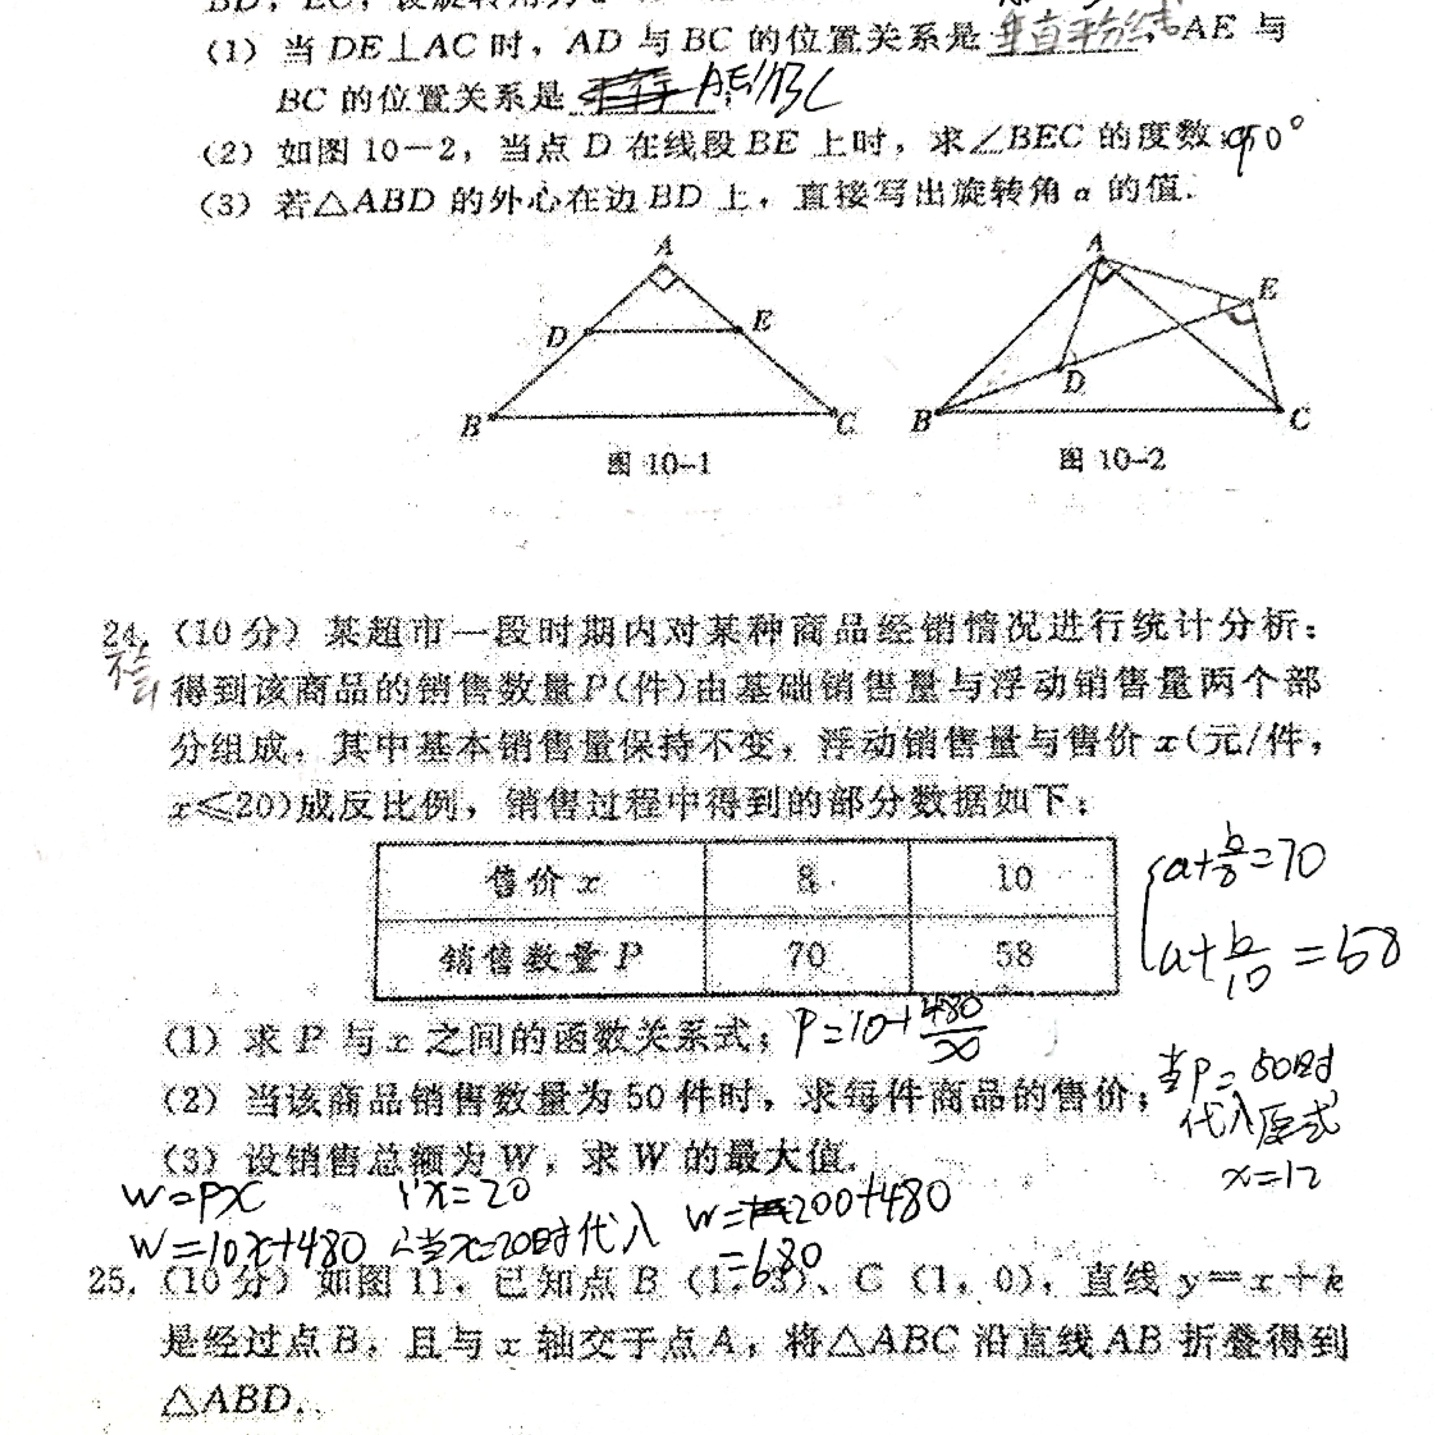 (1) 当 DE⊥AC 时，AD 与 BC 的位置关系是 垂直平分线，AE 与
BC 的位置关系是 AE//BC
(2) 如图 10－2，当点 D 在线段 BE 上时，求∠BEC 的度数；90°
(3) 若△ABD 的外心在边 BD 上，直接写出旋转角 α 的值.
A
D
E
B
C
图 10-1
A
E
D
B
C
图 10-2
24.（10 分）某超市一段时期内对某种商品经销情况进行统计分析：
得到该商品的销售数量 P(件)由基础销售量与浮动销售量两个部
分组成，其中基本销售量保持不变，浮动销售量与售价 x(元/件，
x≤20)成反比例，销售过程中得到的部分数据如下：
售价 x 8 10
销售数量 P 70 58
a+b/8=70
a+b/10=58
(1) 求 P 与 x 之间的函数关系式；P=10+480/x
(2) 当该商品销售数量为 50 件时，求每件商品的售价；当P=50时
代入原式
x=12
(3) 设销售总额为 W，求 W 的最大值.
W=PX ∵x=20 W=200+480
W=10x+480 ∴当x=20时代入 =680
25.（10 分）如图 11，已知点 B（1，3）、C（1，0），直线 y＝x＋k
是经过点 B，且与 x 轴交于点 A，将△ABC 沿直线 AB 折叠得到
△ABD.